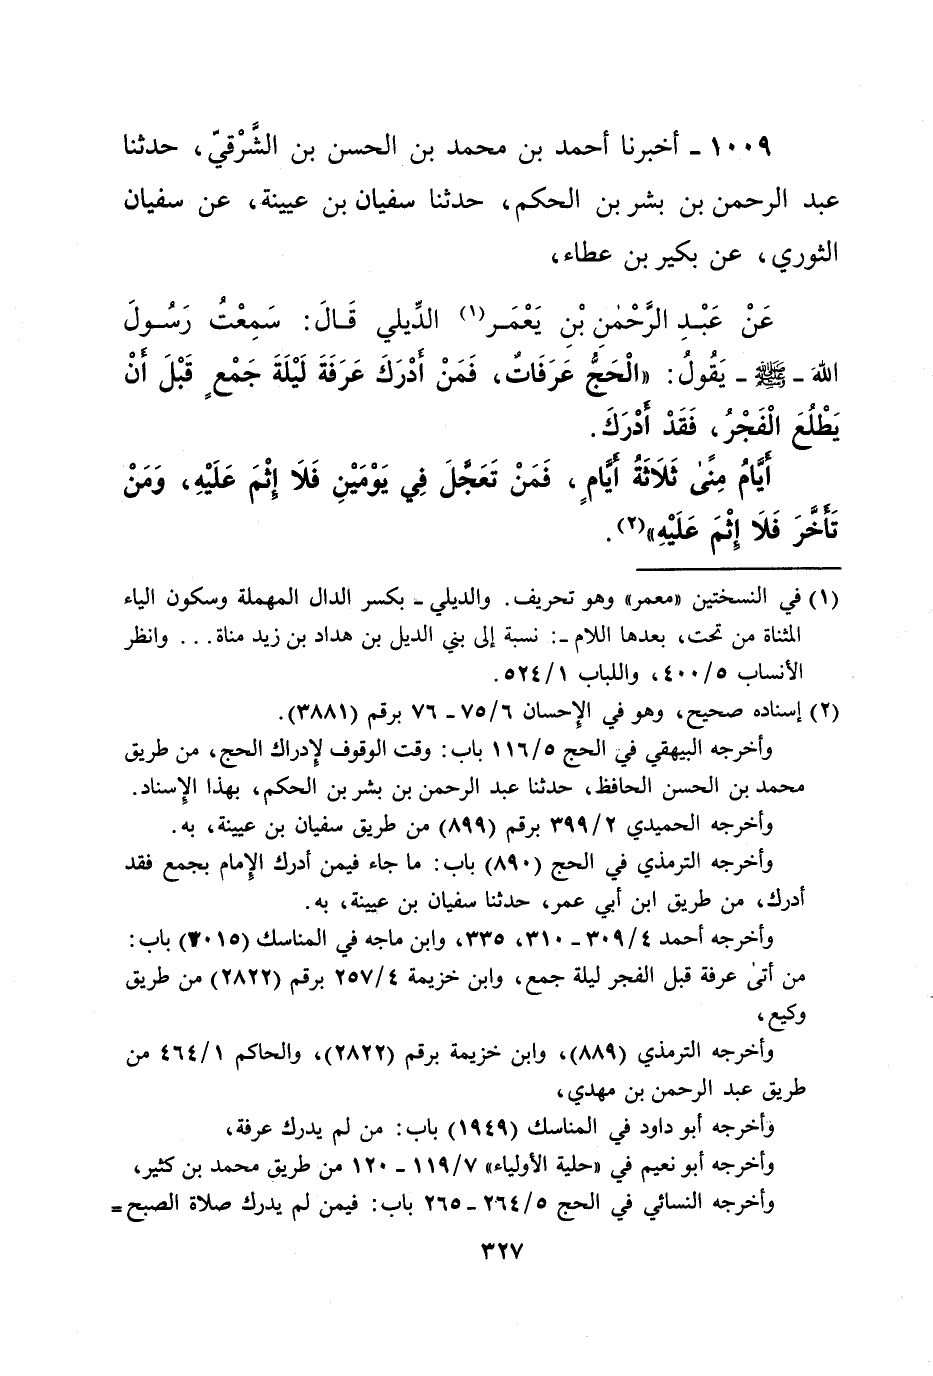 ١٠٠٩ ـ أخبرنا أحمد بن محمد بن الحسن بن الشَّرْقيّ، حدثنا
عبد الرحمن بن بشر بن الحكم، حدثنا سفيان بن عيينة، عن سفيان
الثوري، عن بكير بن عطاء،
عَنْ عَبْدِ الرَّحْمٰنِ بْنِ يَعْمَر(١) الدِّيلي قَالَ: سَمِعْتُ رَسُولَ
اللهَ ـ ﷺ ـ يَقُولُ: «الْحَجُّ عَرَفَاتٌ، فَمَنْ أَدْرَكَ عَرَفَةَ لَيْلَةَ جَمْعٍ قَبْلَ أَنْ
يَطْلُعَ الْفَجْرُ، فَقَدْ أَدْرَكَ.
أَيَّامُ مِنًىٰ ثَلَاثَةُ أَيَّامٍ، فَمَنْ تَعَجَّلَ فِي يَوْمَيْنِ فَلَا إِثْمَ عَلَيْهِ، وَمَنْ
تَأَخَّرَ فَلَا إِثْمَ عَلَيْهِ»(٢).
(١) في النسختين «معمر» وهو تحريف. والديلي ـ بكسر الدال المهملة وسكون الياء
المثناة من تحت، بعدها اللام ـ: نسبة إلى بني الديل بن هداد بن زيد مناة... وانظر
الأنساب ٤٠٠/٥، واللباب ٥٢٤/١.
(٢) إسناده صحيح، وهو في الإحسان ٧٥/٦ ـ ٧٦ برقم (٣٨٨١).
وأخرجه البيهقي في الحج ١١٦/٥ باب: وقت الوقوف لإدراك الحج، من طريق
محمد بن الحسن الحافظ، حدثنا عبد الرحمن بن بشر بن الحكم، بهذا الإسناد.
وأخرجه الحميدي ٣٩٩/٢ برقم (٨٩٩) من طريق سفيان بن عيينة، به.
وأخرجه الترمذي في الحج (٨٩٠) باب: ما جاء فيمن أدرك الإمام بجمع فقد
أدرك، من طريق ابن أبي عمر، حدثنا سفيان بن عيينة، به.
وأخرجه أحمد ٣٠٩/٤ ـ ٣١٠، ٣٣٥، وابن ماجه في المناسك (٣٠١٥) باب:
من أتىٰ عرفة قبل الفجر ليلة جمع، وابن خزيمة ٢٥٧/٤ برقم (٢٨٢٢) من طريق
وكيع،
وأخرجه الترمذي (٨٨٩)، وابن خزيمة برقم (٢٨٢٢)، والحاكم ٤٦٤/١ من
طريق عبد الرحمن بن مهدي،
وأخرجه أبو داود في المناسك (١٩٤٩) باب: من لم يدرك عرفة،
وأخرجه أبو نعيم في «حلية الأولياء» ١١٩/٧ ـ ١٢٠ من طريق محمد بن كثير،
وأخرجه النسائي في الحج ٢٦٤/٥ ـ ٢٦٥ باب: فيمن لم يدرك صلاة الصبح =
٣٢٧